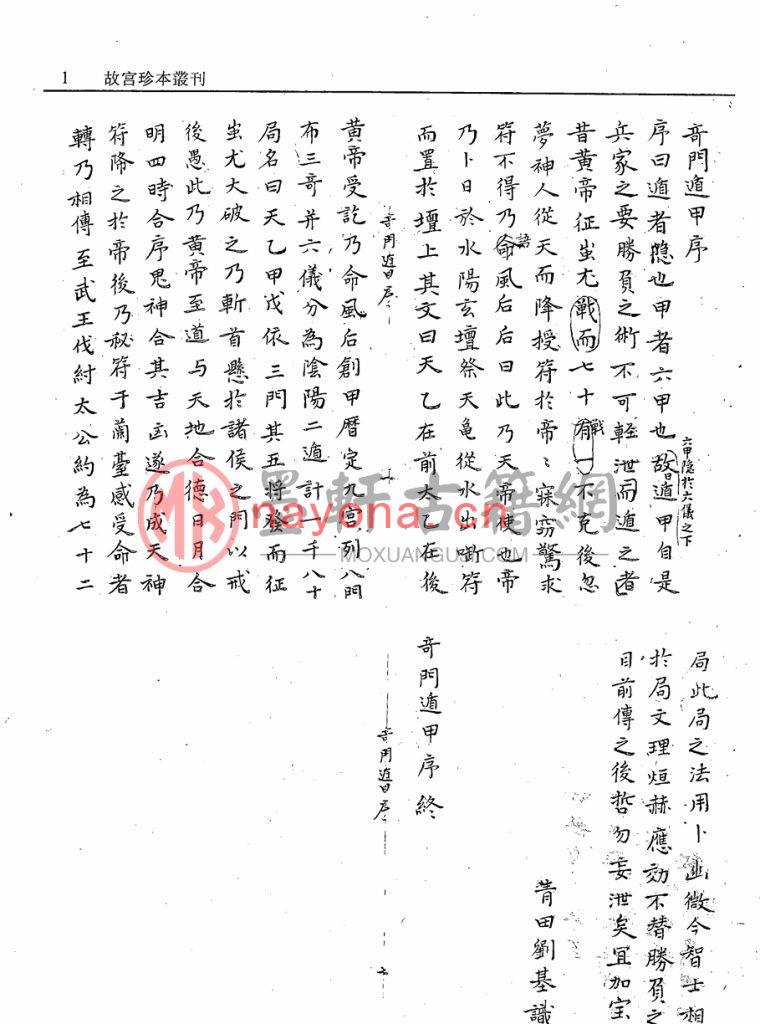 1 故宮珍本叢刊
奇門遁甲序
序曰遁者隐也甲者六甲也故曰遁甲自是
六甲隐於六儀之下
兵家之要勝負之術不可輕泄而遁之者
昔黄帝征蚩尤戰而七十有一戰不克後忽
夢神人從天而降授符於帝〻寐窃驚求
符不得乃命風后后曰此乃天帝使也帝
語
乃卜日於水陽玄壇祭天亀從水出啣符
而置於壇上其文曰天乙在前太乙在後
奇門遁甲序
一
黄帝受訖乃命風后創甲曆定九宮列八門
布三奇并六儀分為陰陽二遁計一千八十
局名曰天乙甲戊依三門其五将發而征
蚩尤大破之乃斬首懸於諸侯之門以戒
後愚此乃黄帝至道与天地合德日月合
明四時合序鬼神合其吉凶遂乃成天神
符降之於帝後乃秘符于蘭臺感受命者
轉乃相傳至武王伐紂太公約為七十二
局此局之法用卜幽微今智士相
於局文理烜赫應効不替勝負之
目前傳之後哲勿妄泄矣冝加宝
青田劉基識
奇門遁甲序終
奇門遁甲序
七
墨軒古籍網
nayona.cn
MOXUANGUJI.COM